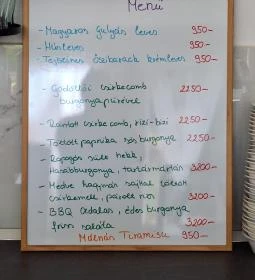 Menü
- Magyaros Gulyás leves 950-
- Húsleves 950-
- Tejszínes Őszibarack krémleves 950-
- Gödöllői csirkecomb
burgonyapürével 2250-
- Rántott csirkecomb, rizi-bizi 2250-
- Töltött paprika, sós burgonya 2250-
- Ropogós sült hekk,
Hasábburgonya, tartármártás 3200-
- Medve hagymás sajttal töltött
csirkemell, párolt rizs 3200-
- BBQ oldalas, édes burgonya
friss saláta 3200-
Málnás Tiramisu 950-